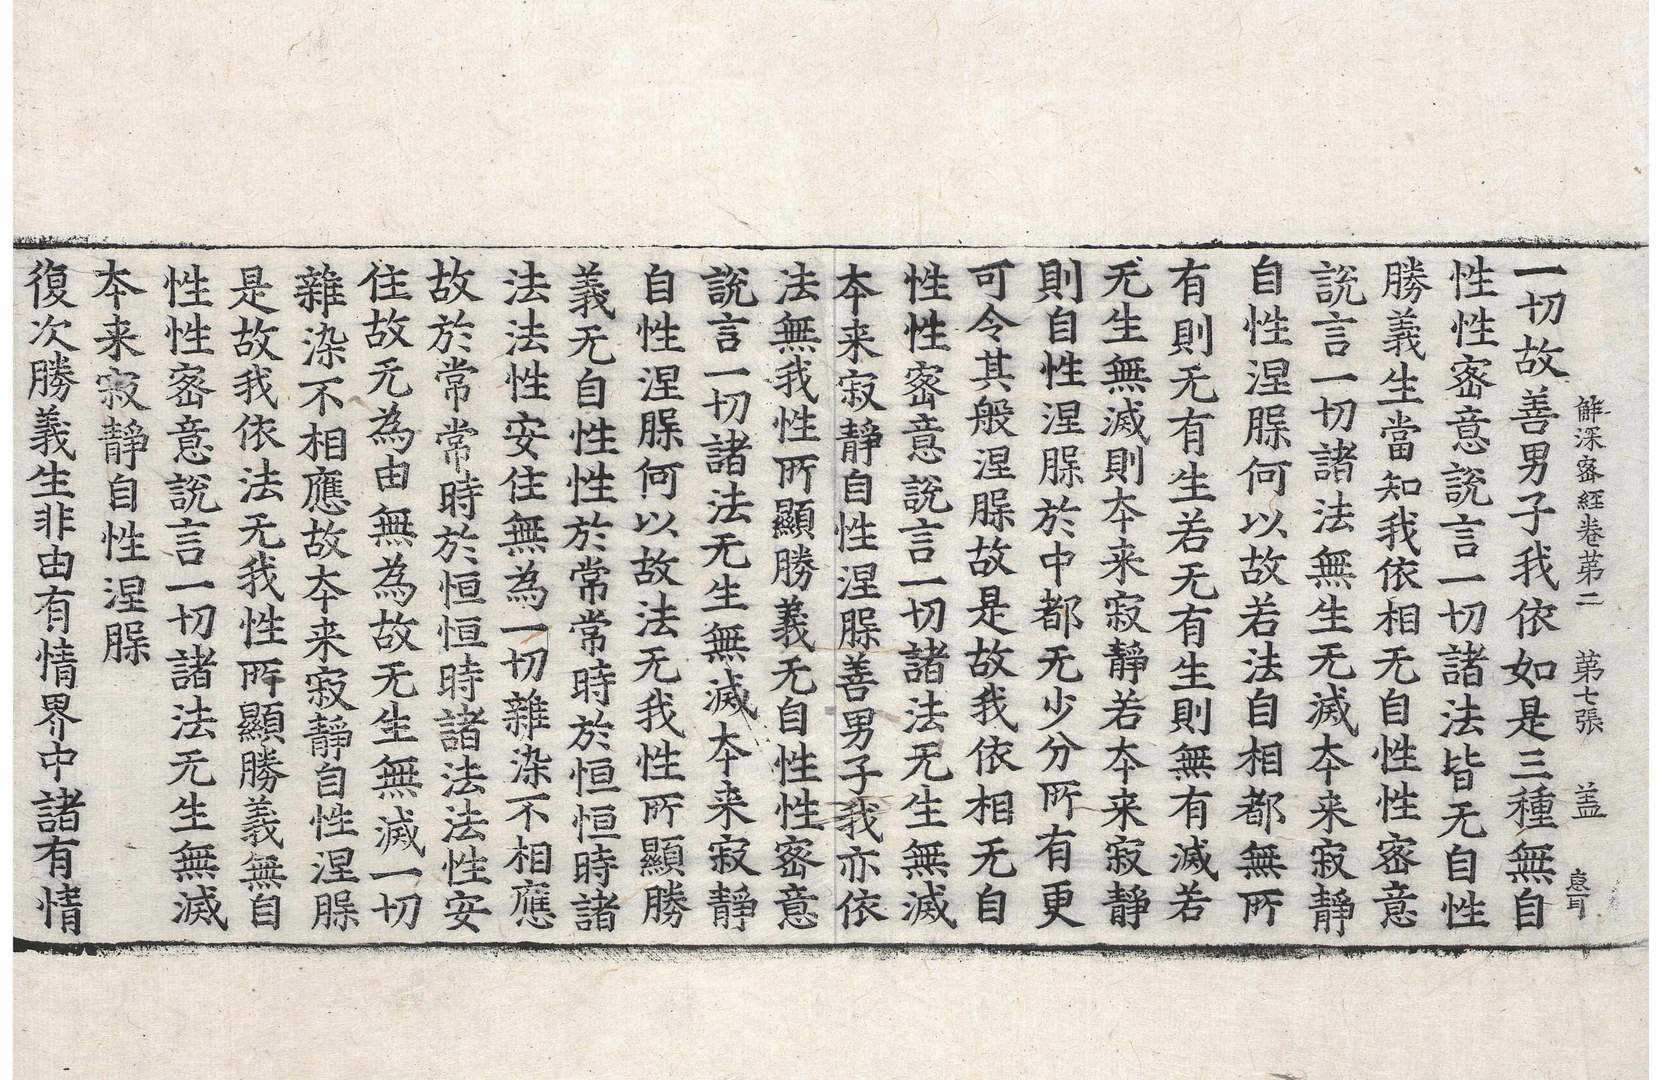 解深密經卷第二 第七張 盖
一切故善男子我依如是三種無自
性性密意說言一切諸法皆无自性
勝義生當知我依相无自性性密意
說言一切諸法無生无滅夲来寂靜
自性涅槃何以故若法自相都無所
有則无有生若无有生則無有滅若
无生無滅則夲来寂靜若夲来寂靜
則自性涅槃於中都无少分所有更
可令其般涅槃故是故我依相无自
性性密意說言一切諸法无生無滅
夲来寂靜自性涅槃善男子我亦依
法無我性所顯勝義无自性性密意
說言一切諸法无生無滅夲来寂靜
自性涅槃何以故法无我性所顯勝
義无自性性於常常時於恒恒時諸
法法性安住無為一切雜染不相應
故於常常時於恒恒時諸法法性安
住故无為由無為故无生無滅一切
雜染不相應故夲来寂靜自性涅槃
是故我依法无我性所顯勝義無自
性性密意說言一切諸法无生無滅
夲来寂靜自性涅槃
復次勝義生非由有情界中諸有情